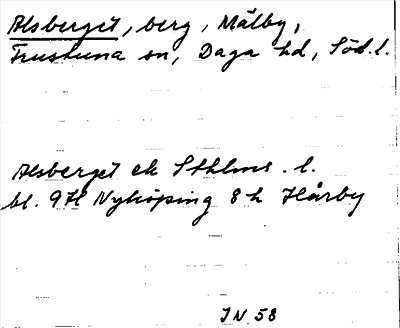 Alsberget, berg, Mälby,
Frustuna sn, Daga hd, Söd.l.
Alsberget ek Sthlms. l.
bl. 9H Nyköping 8 h Hårby
JN 58